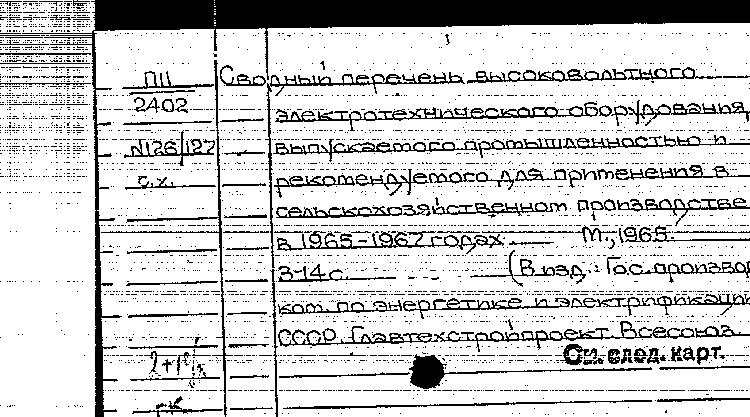 П11 Сводный перечень высоковольтного
2402 электротехнического оборудования,
N126/127 выпускаемого промышленностью и
с.х. рекомендуемого для применения в
сельскохозяйственном производстве
в 1965-1967 годах. М., 1965.
3-14 с. (В изд.: Гос. производ
ком. по энергетике и электрификации
СССР. Главтехстройпроект. Всесоюз
См. след. карт.
гк